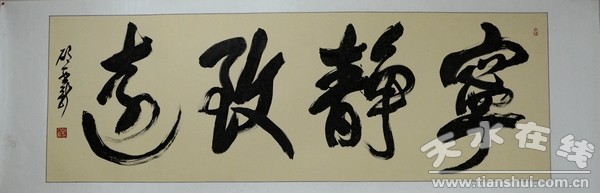 寧静致遠
天水在线
www.tianshui.com.cn